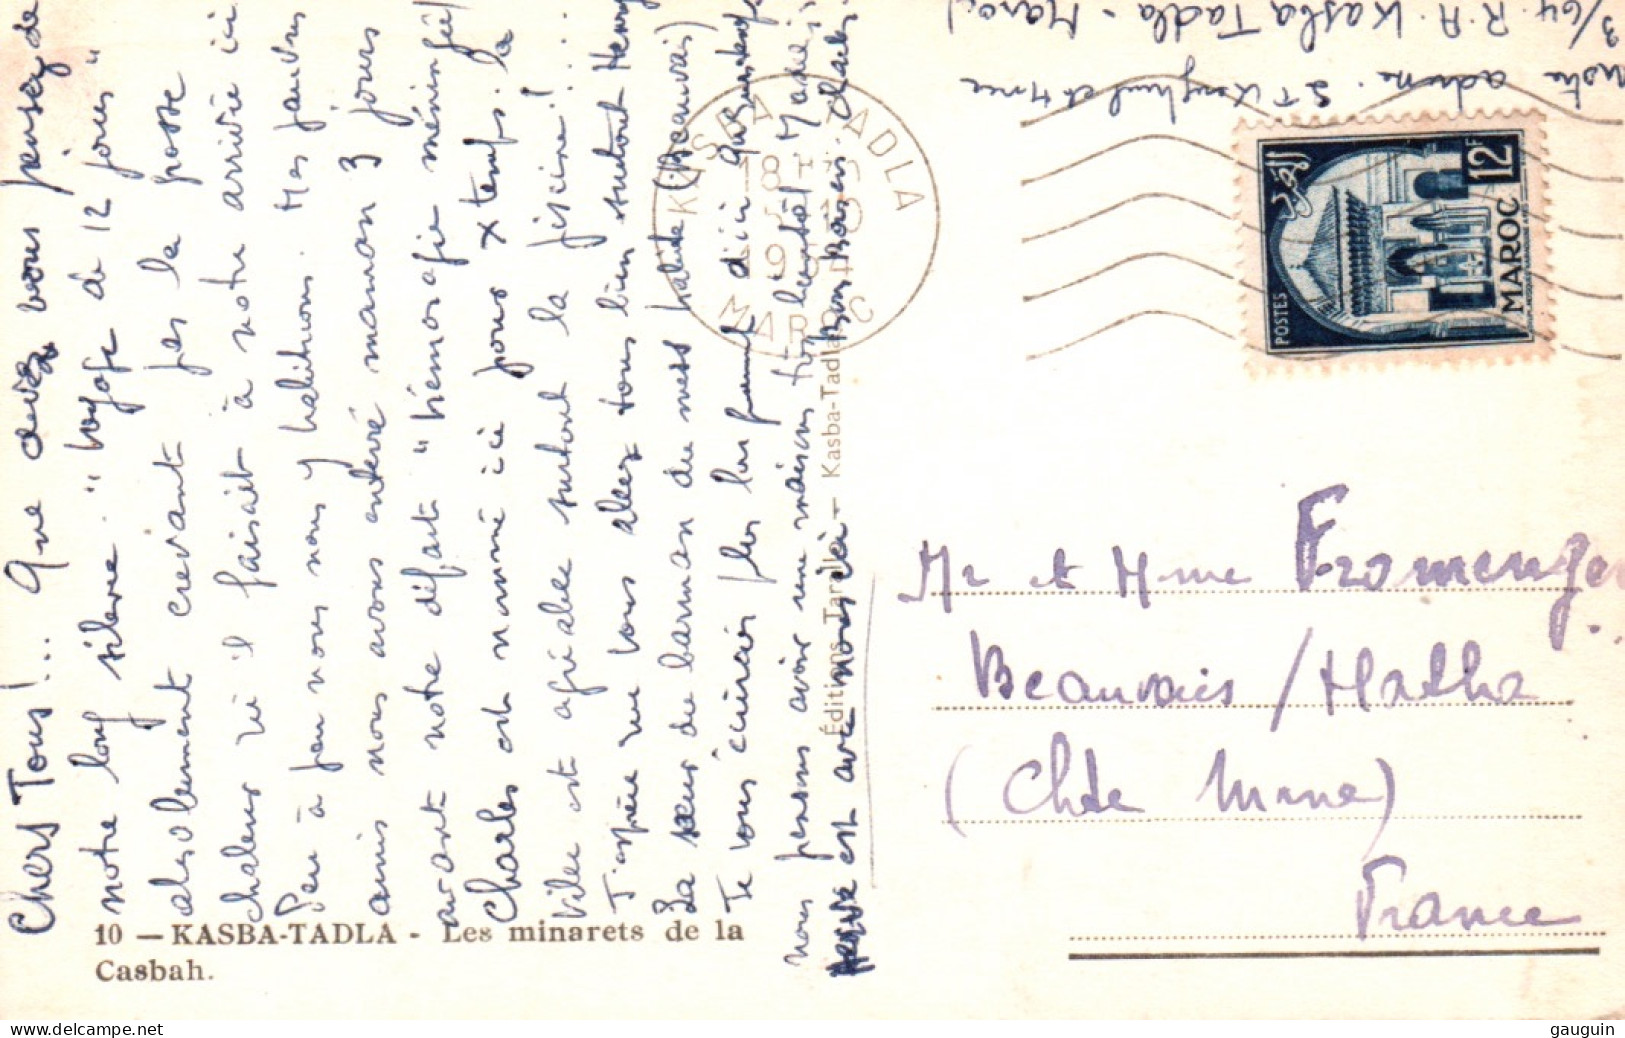 Chers Tous!.. Que devez vous penser de
notre long silence. "Voyage de 12 jours"
absolument crevant pas la poste
chaleur qu'il faisait à notre arrivée ici
Peu à peu nous nous y habituons. Mes pauvres
amis nous avons enterré maman 3 jours
avant notre départ "hémoragie méningée"
Charles est nommé ici pour x temps. La
Ville est agréable surtout la piscine!...
J'espère que vous allez tous bien surtout Henry
La sœur du barman du mess habite (Beauvais)
Je vous écrirai plus longuement d'ici quelques temps
nous pensons avoir une maison très bientôt
est avec nous ici - Bons Baisers. Charles.
Notre adresse. et Mme
3/64. R.A. Kasba Tadla - Maroc)
KASBA TADLA
MAROC
POSTES
MAROC
12F
Éditions Kasba-Tadla
Mr et Mme Fromenger
Beauvais / Matha
(Chte Mme)
France
10 — KASBA-TADLA - Les minarets de la
Casbah.
gauguin